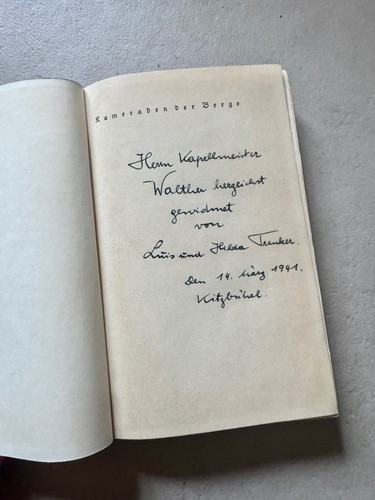 Kameraden der Berge
Herrn Kapellmeister
Walther herzlichst
gewidmet
von
Luis und Hilda Trenker.
Den 14. März 1941.
Kitzbühel.